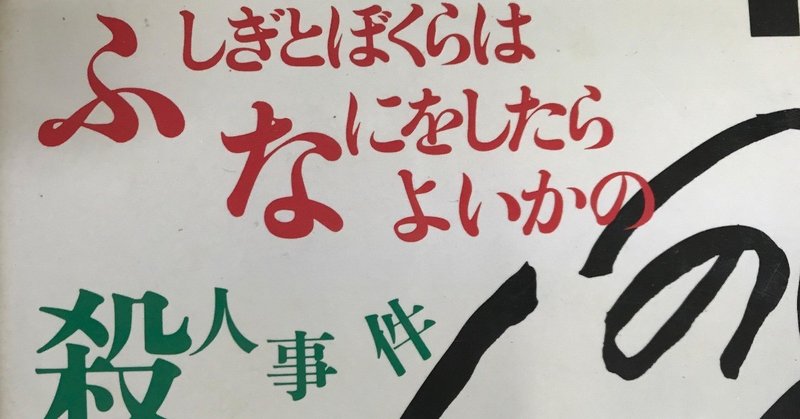 ふしぎとぼくらは
なにをしたら
よいかの
殺人事件